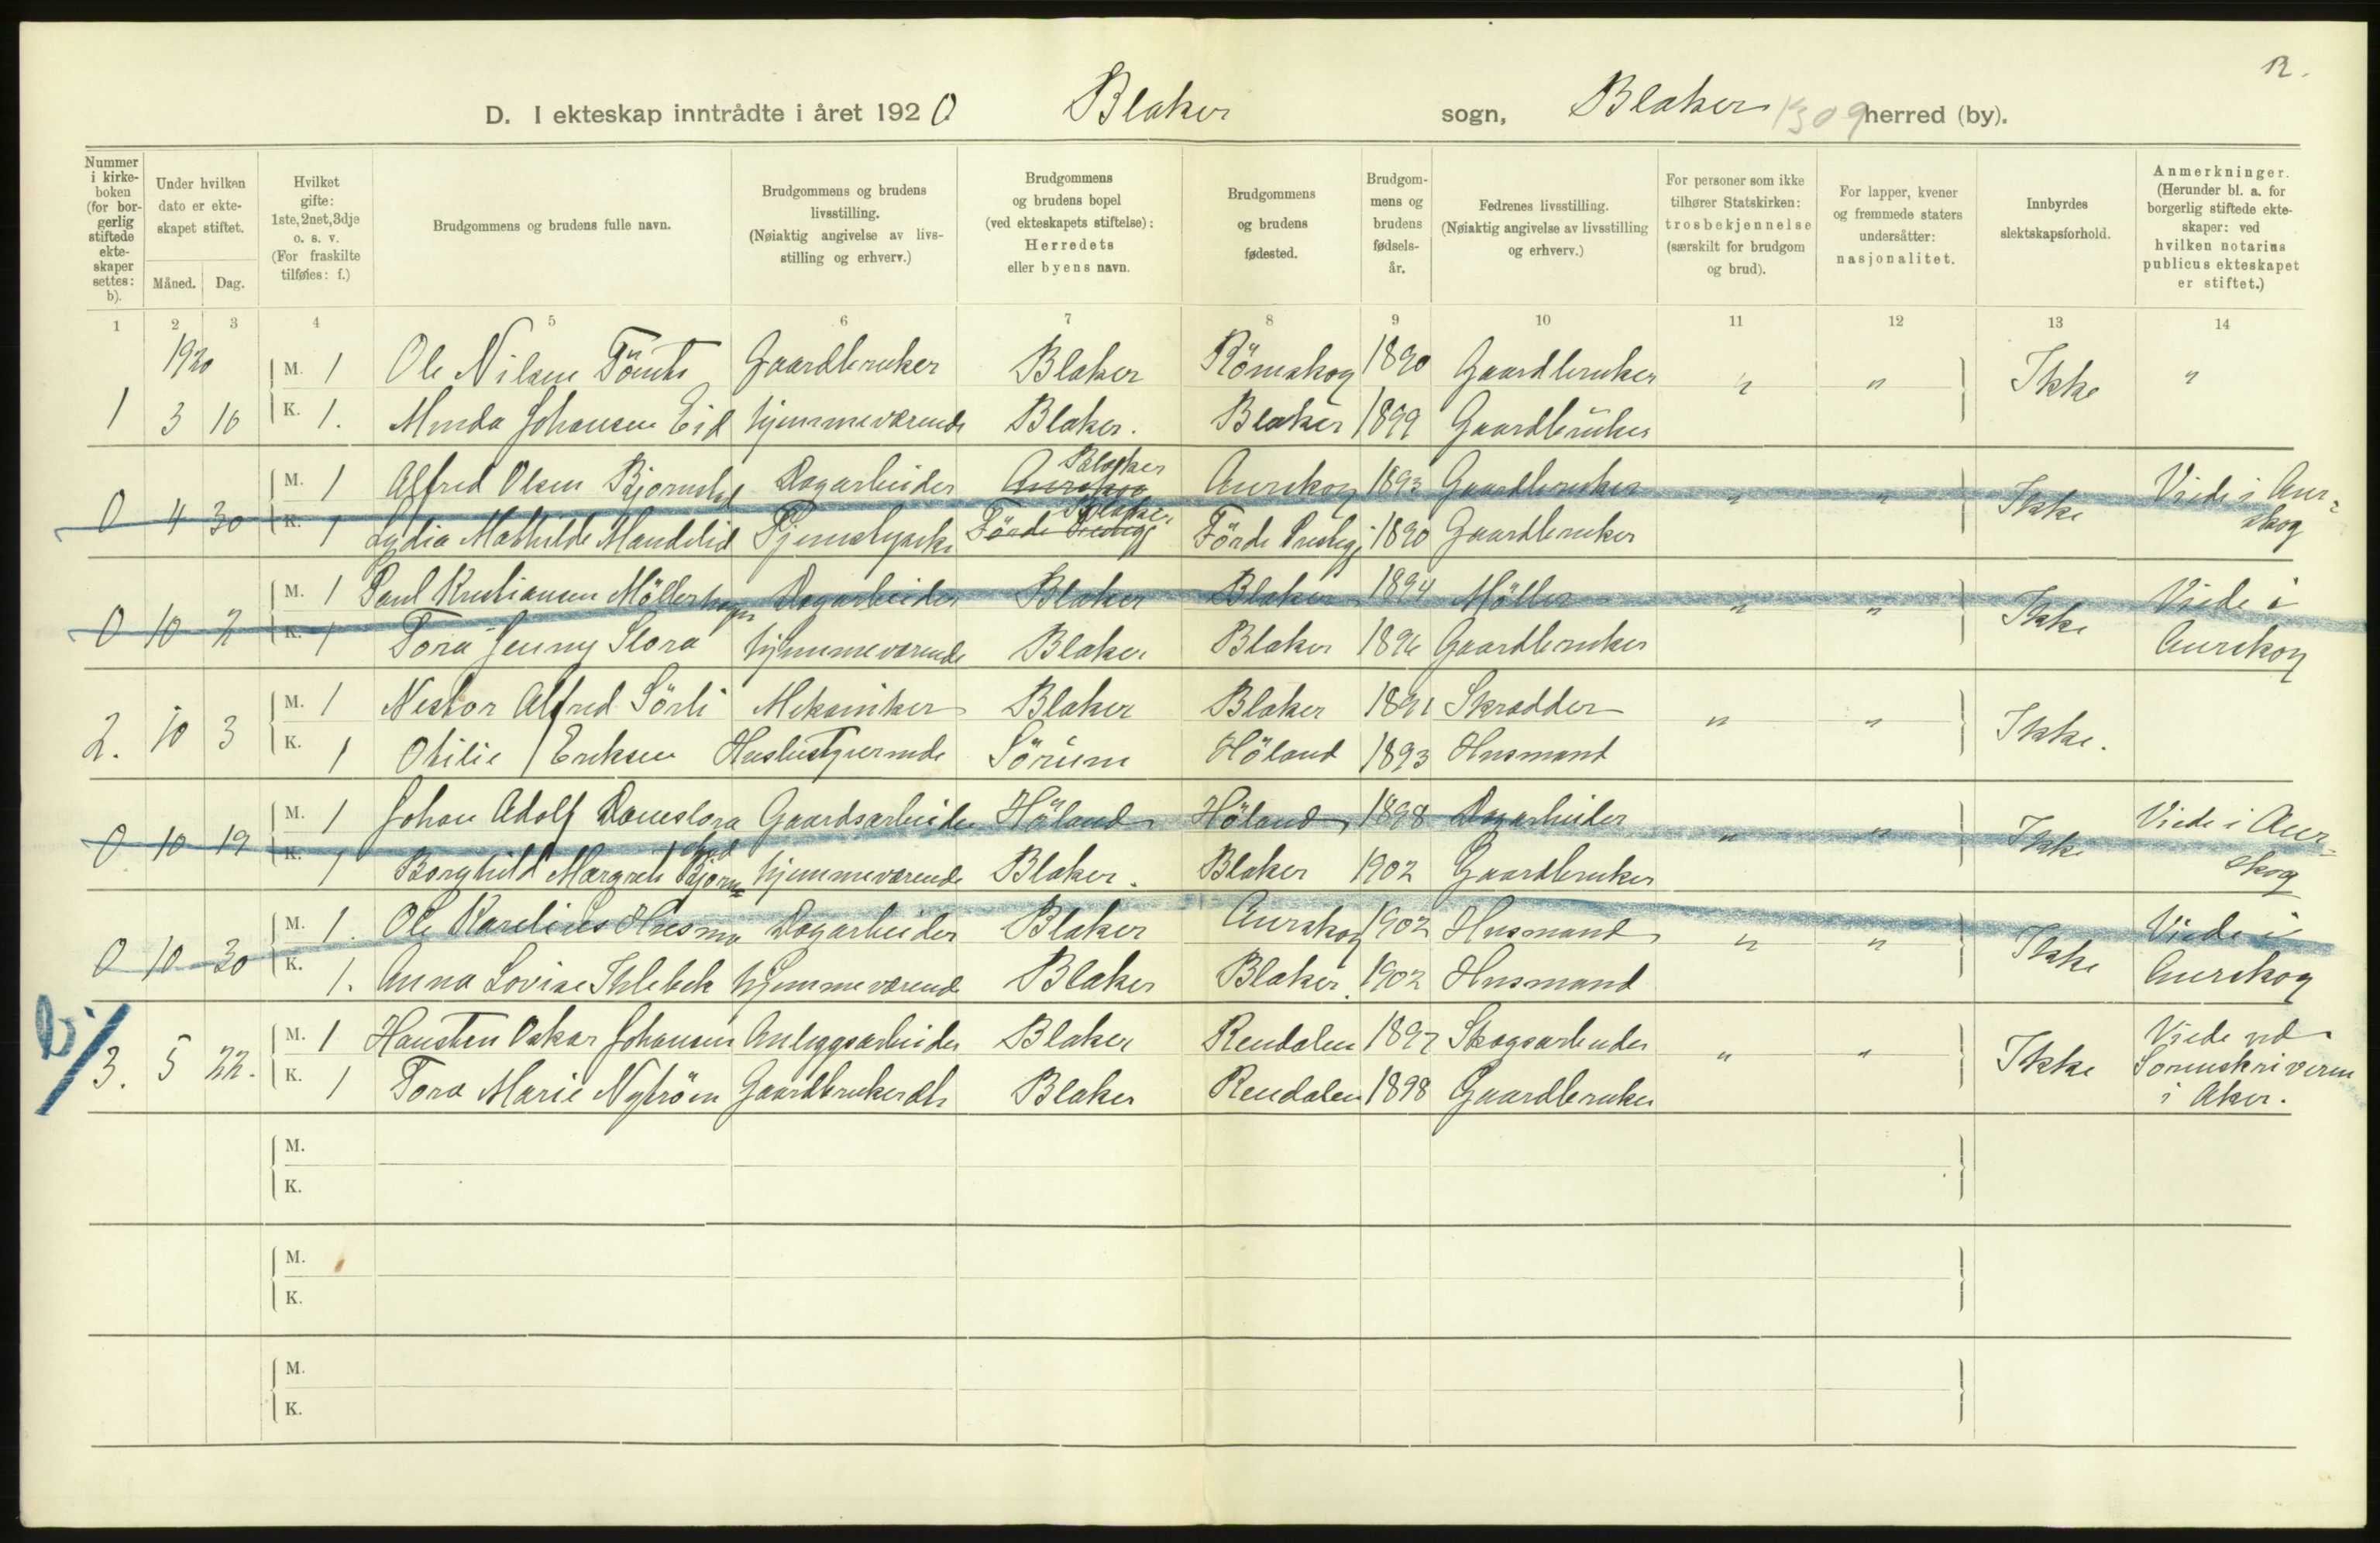 12.
D. I ekteskap inntrådte i året 1920 Blaker sogn, Blaker 1309 herred (by).
Nummer i kirke-boken (for bor-gerlig stiftede ekte-skaper settes: b).
Under hvilken dato er ekte-skapet stiftet.
Måned. Dag.
Hvilket gifte: 1ste, 2net, 3dje o. s. v. (For fraskilte tilføies: f.)
Brudgommens og brudens fulle navn.
Brudgommens og brudens livsstilling. (Nøiaktig angivelse av livs-stilling og erhverv.)
Brudgommens og brudens bopel (ved ekteskapets stiftelse): Herredets eller byens navn.
Brudgommens og brudens fødested.
Brudgom-mens og brudens fødsels-år.
Fedrenes livsstilling. (Nøiaktig angivelse av livsstilling og erhverv.)
For personer som ikke tilhører Statskirken: trosbekjennelse (særskilt for brudgom og brud).
For lapper, kvener og fremmede staters undersåtter: nasjonalitet.
Innbyrdes slektskapsforhold.
Anmerkninger. (Herunder bl. a. for borgerlig stiftede ekte-skaper: ved hvilken notarius publicus ekteskapet er stiftet.)
1 2 3 4 5 6 7 8 9 10 11 12 13 14
1920 M. 1 Ole Nilsen Gaardbruker Blaker Römskog 1890 Gaardbruker " " Ikke "
1 3 16 K. 1. Minda Johansen Eid hjemmeværende Blaker. Blaker 1899 Gaardbruker
M. 1 Alfred Olsen Bjørnstad Dagarbeider Aurskog Blaker Aurskog 1893 Gaardbruker " " Ikke Viede i Aur-
0 4 30 K. 1 Lydia Mathilde Mandelid Tjenestepike Förde Prestegj Blaker Förde Prestegj. 1890 Gaardbruker skog
M. 1 Paul Kristiansen Möllerhagen Dagarbeider Blaker Blaker 1894 Möller " " Ikke Viede i
0 10 2 K. 1 Tora Jenny Slora hjemmeværende Blaker Blaker 1896 Gaardbruker Aurskog
M. 1 Nestor Alfred Sörli Mekaniker Blaker Blaker 1891 Skrædder " " Ikke.
2. 10 3 K. 1 Otilie Eriksen Husbestyrerinde Sörum Höland 1893 Husmand
M. 1 Johan Adolf Daneslora Gaardsarbeider Höland Höland 1898 Dagarbeider " " Ikke Viede i Aur-
0 10 19 K. 1 Borghild Margrete Bjørnstad hjemmeværende Blaker. Blaker 1902 Gaardbruker skog
M. 1. Ole Karelius Husmo Dagarbeider Blaker Aurskog 1902 Husmand " " Ikke Viede i
0 10 30 K. 1. Anna Lovise Ihlebek hjemmeværende Blaker Blaker. 1902 Husmand Aurskog
b. M. 1 Hansten Oskar Johansen Anleggsarbeider Blaker Rendalen 1897 Skogsarbeider " " Ikke Viede ved
3. 5 22. K. 1 Tora Marie Nyström Gaardbrukerdtr Blaker Rendalen 1898 Gaardbruker Sorenskriveren
i Aker.
M.
K.
M.
K.
M.
K.